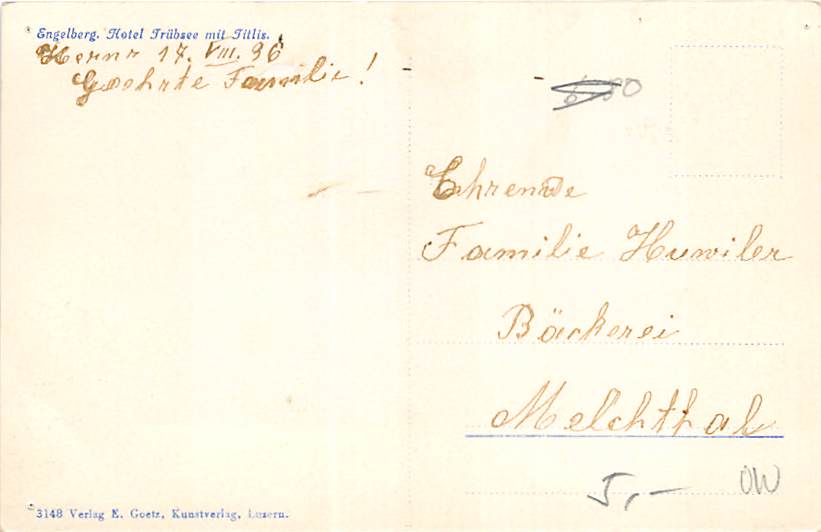 Engelberg. Hotel Trübsee mit Titlis.
17. VIII. 36
Geehrte Familie!
Ehrende
Familie Huwiler
Bäckerei
Melchthal
5,— OW
3148 Verlag E. Goetz, Kunstverlag, Luzern.